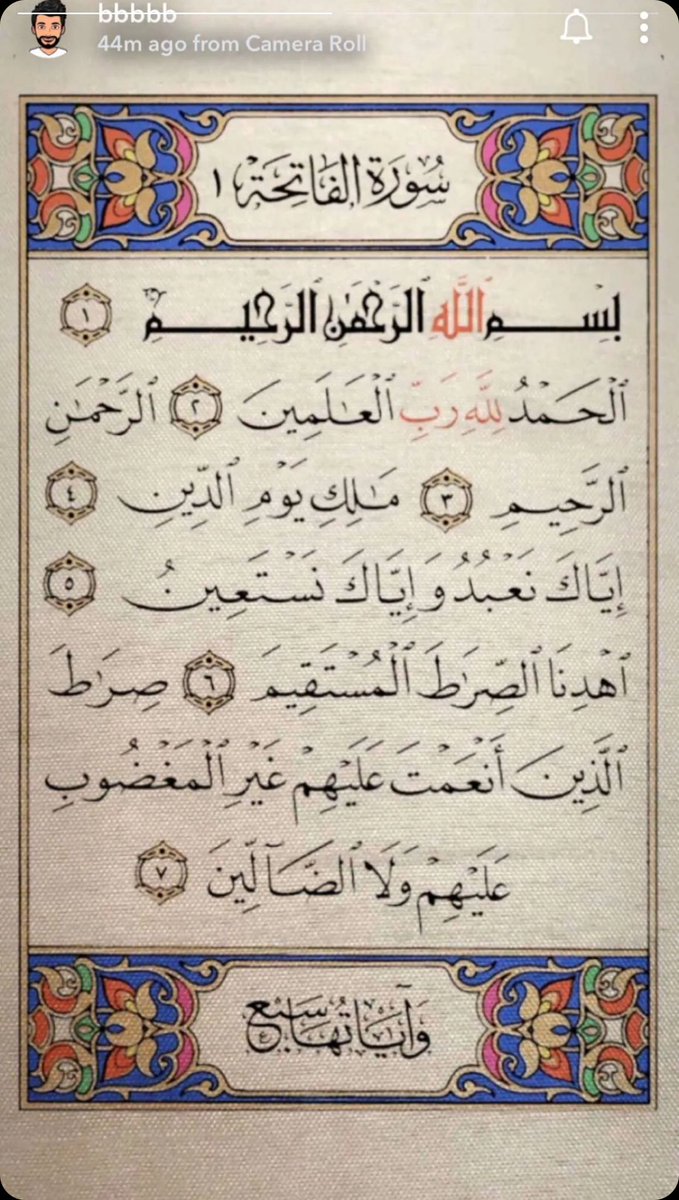 bbbbb
44m ago from Camera Roll
سُورَةُ الفَاتِحَةِ ١
بِسْمِ ٱللَّهِ ٱلرَّحْمَٰنِ ٱلرَّحِيمِ ١
ٱلْحَمْدُ لِلَّهِ رَبِّ ٱلْعَٰلَمِينَ ٢ ٱلرَّحْمَٰنِ
ٱلرَّحِيمِ ٣ مَٰلِكِ يَوْمِ ٱلدِّينِ ٤
إِيَّاكَ نَعْبُدُ وَإِيَّاكَ نَسْتَعِينُ ٥
ٱهْدِنَا ٱلصِّرَٰطَ ٱلْمُسْتَقِيمَ ٦ صِرَٰطَ
ٱلَّذِينَ أَنْعَمْتَ عَلَيْهِمْ غَيْرِ ٱلْمَغْضُوبِ
عَلَيْهِمْ وَلَا ٱلضَّآلِّينَ ٧
وَآيَاتُهَا سَبْعٌ